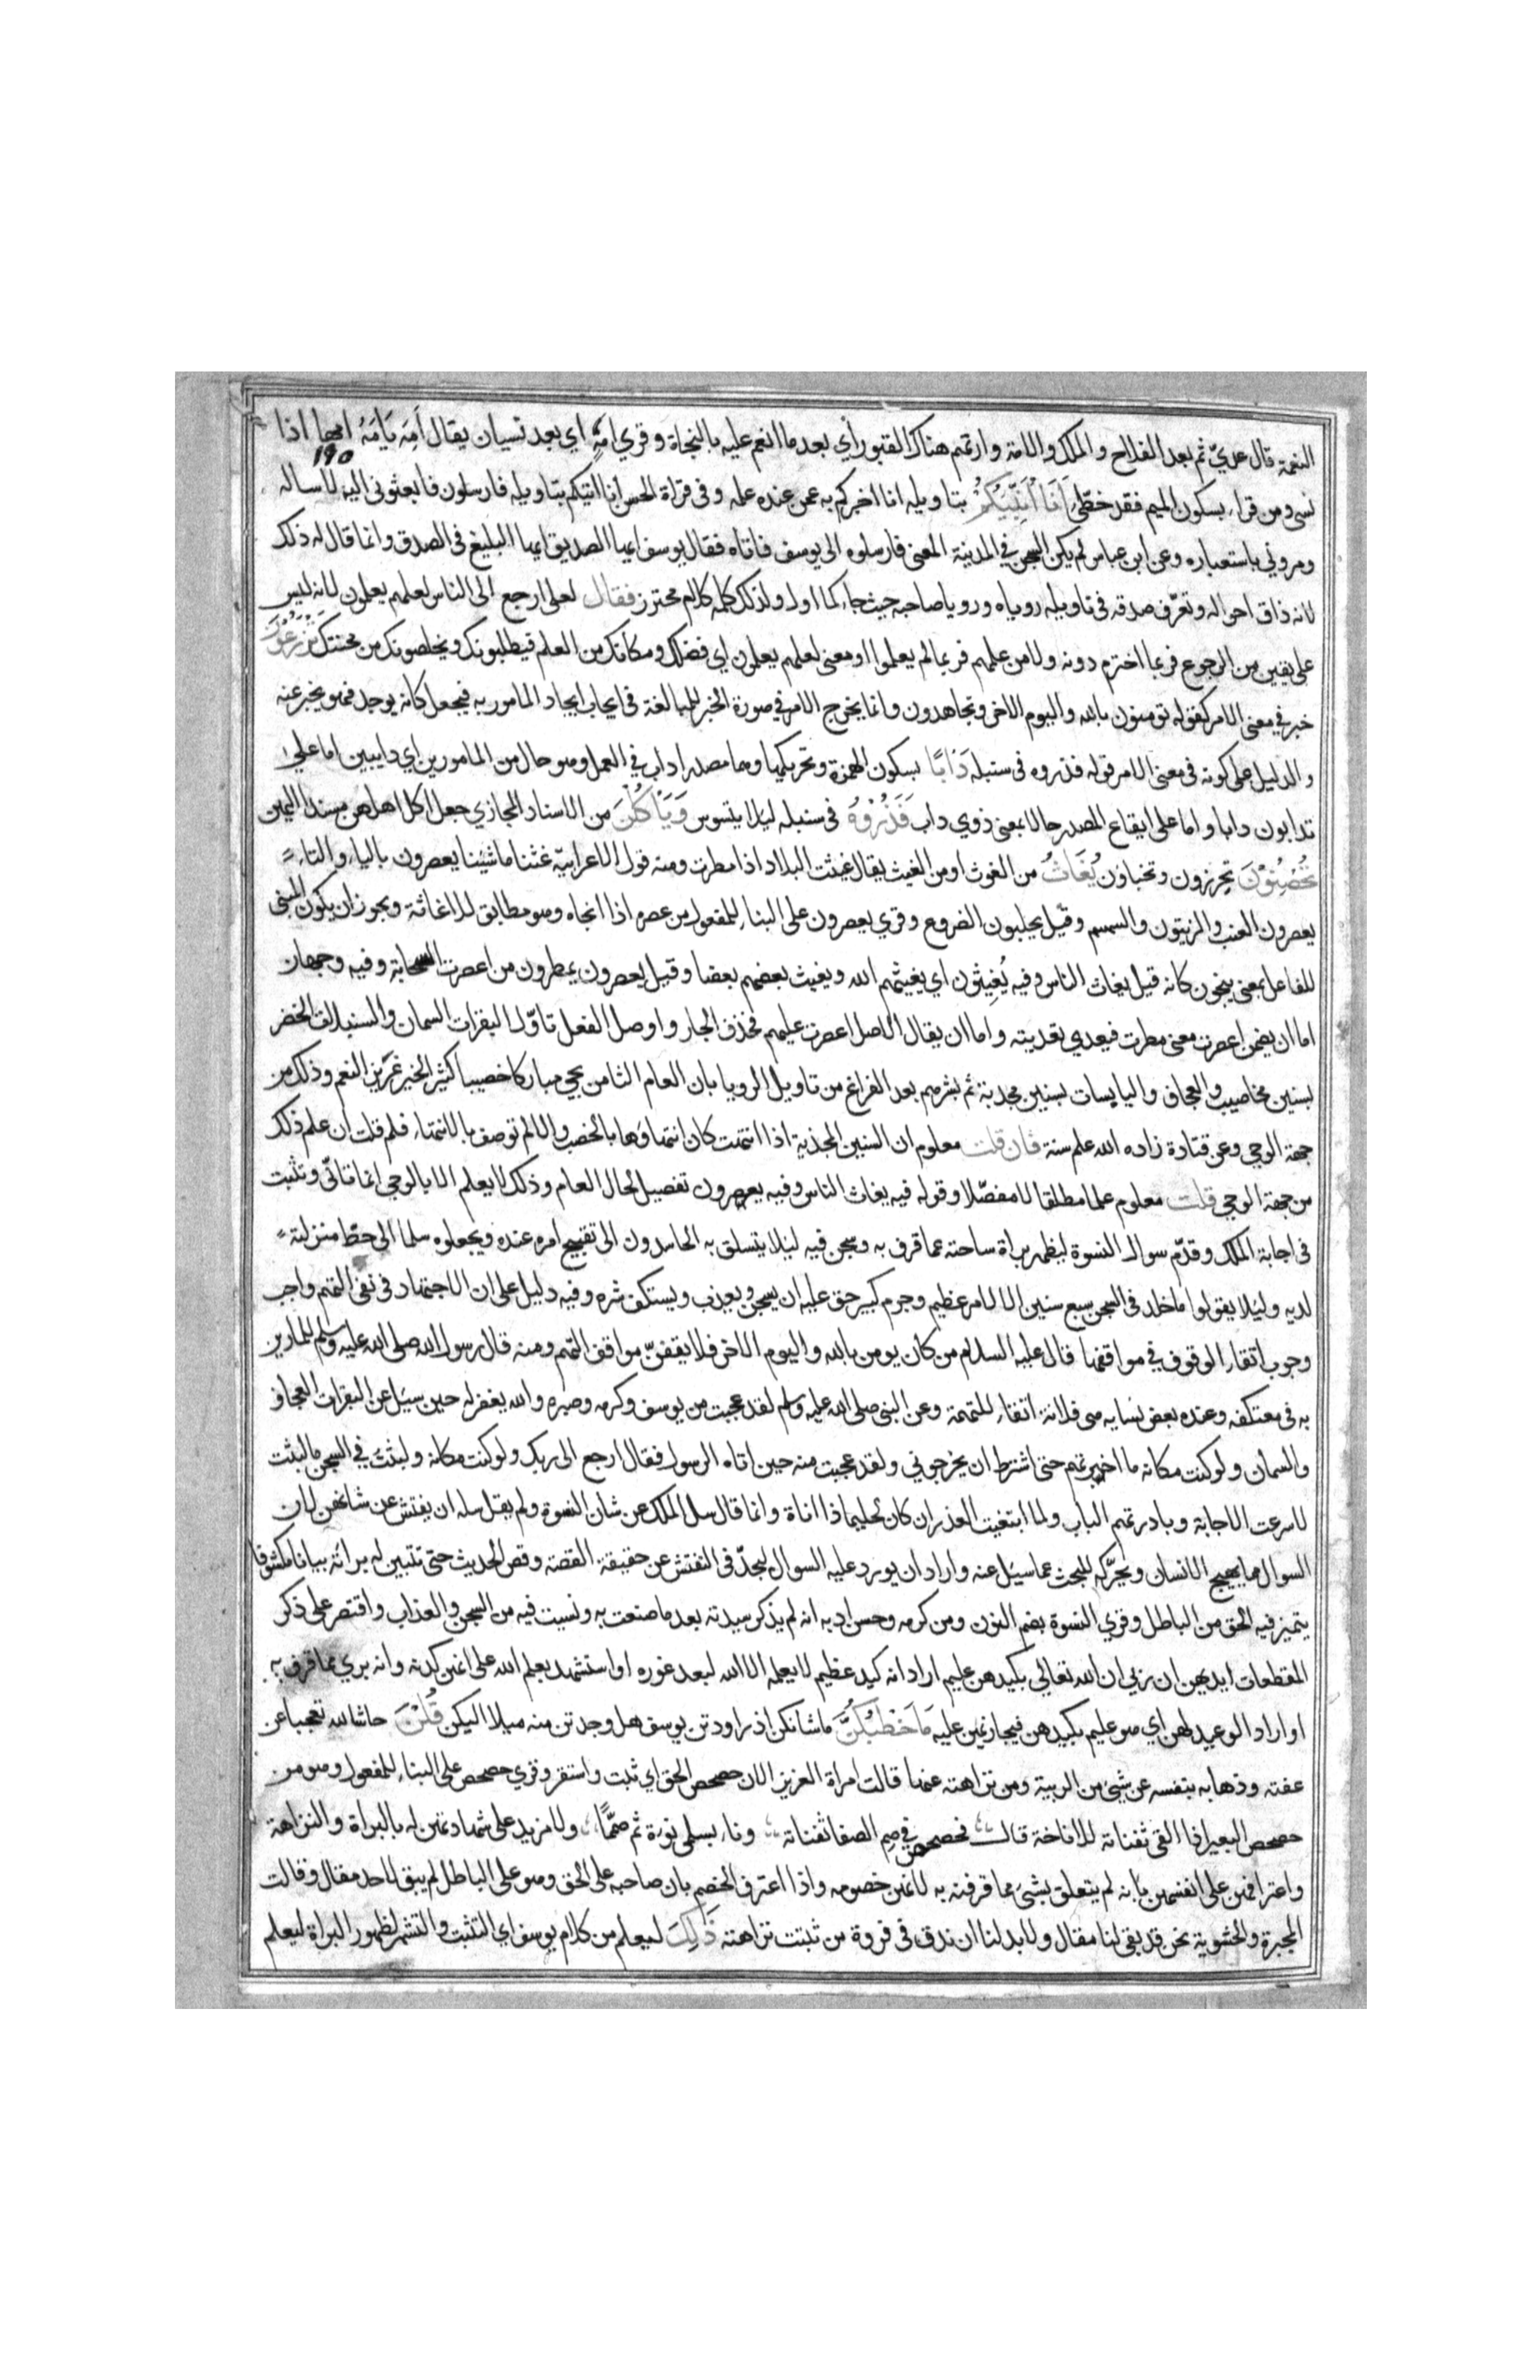 النعمة قال عديّ ثم بعد الفلاح والملك والامة وارتهم هناك القبور أي بعد ما انعم عليه بالنجاة وقري امَهٍ اي بعد نسيان يقال اَمِهَ يَامَهُ امها اذا
١٩٥
نسى ومن قراء بسكون الميم فقد خطّئ اَنَا اُنَبِّئُكُمْ بتاويله انا اخبركم به عمن عنده علمه وفى قراة الحسن انا اتيكم بتاويله فارسلون فابعثونى اليه لاساله
ومروني باستعباره وعن ابن عباس لم يكن السجن في المدينة المعنى فارسلوه الى يوسف فاتاه فقال يوسف ايها الصديق ايها البليغ فى الصدق وانما قال له ذلك
لانه ذاق احواله وتعرّف صدقه فى تاويله روياه ورويا صاحبه حيث جاء كما اول ولذلك كلمه كلام محترز فقال لعلى ارجع الى الناس لعلهم يعلمون لانه ليس
على يقين من الرجوع فربما اخترم دونه ولا من علمهم فربما لم يعلموا او معنى لعلهم يعلمون اي فضلك ومكانك من العلم فيطلبونك ويخلصونك من محنتك تَزْرَعُونَ
خبر في معنى الامر كقوله تومنون بالله واليوم الاخر وتجاهدون وانما يخرج الامر في صورة الخبر للمبالغة فى ايجاب ايجاد المامور به فيجعل كانه يوجد فهو يخبر عنه
والدليل على كونه فى معنى الامر قوله فذروه فى سنبله دَاَبًا بسكون الهمزة وتحريكها وهما مصدرا داب في العمل وهو حال من المامورين اي دايبين اما على
تدابون دابا واما على ايقاع المصدر حالا بمعنى ذوي داب فَذَرُوْهُ فى سنبله ليلا يتسوس وَيَاْكُلْنَ من الاسناد المجازي جعل اكل اهلهن مسندا اليهن
تُحْصِنُوْنَ تحرزون وتخباؤن يُغَاثُ من الغوث او من الغيث يقال غيثت البلاد اذا مطرت ومنه قول الاعرابيّة غثنا ما شيئنا يعصرون بالياء والتاء
يعصرون العنب والزيتون والسمسم وقيل يحلبون الضروع وقري يعصرون على البناء للمفعول من عصره اذا انجاه وهو مطابق للاغاثة ويجوز ان يكون المبنى
للفاعل بمعنى ينجون كانه قيل يغاث الناس وفيه يُغِيثُون اي يغيثهم الله ويغيث بعضهم بعضا وقيل يعصرون يمطرون من اعصرت السحابة وفيه وجهان
اما ان يضمن اعصرت معنى مطرت فيعدي تعديته واما ان يقال الاصل اعصرت عليهم فحذف الجار واوصل الفعل تاوّل البقرات السمان والسنبلات الخضر
بسنين مخاصيب والعجاف واليابسات بسنين مجدبة ثم بشرهم بعد الفراغ من تاويل الرويا بان العام الثامن يجي مباركا خصيبا كثير الخير غزير النعم وذلك من
جهة الوحي وعن قتادة زاده الله علم سنة فان قلت معلوم ان السنين المجذبة اذا انتهت كان انتهاوها بالخصب والا لم توصف بالانتهاء فلم قلت ان علم ذلك
من جهة الوحي قلت معلوم علما مطلقا لا مفصّلا وقوله فيه يغاث الناس وفيه يعصرون تفصيل لحال العام وذلك لا يعلم الا بالوحي انما تانّى وتثبت
فى اجابة الملك وقدّم سوال النسوة ليظهر براة ساحته عما قرف به وسجن فيه ليلا يتسلق به الحاسدون الى تقبيح امره عنده ويجعلوه سلما الى حطّ منزلته
لديه وليلا يقولوا ما خلد فى السجن سبع سنين الا لامر عظيم وجرم كبير حق عليه ان يسجن ويعذب ويستكف شره وفيه دليل على ان الاجتهاد فى نفى التهم واجب
وجوب اتقاء الوقوف في مواقفها قال عليه السلام من كان يومن بالله واليوم الاخر فلا يقفنّ مواقف التهم ومنه قال رسول الله صلى الله عليه وسلم للمارين
به فى معتكفه وعنده بعض نسايه هى فلانة اتقاء للتهمة وعن النبى صلى الله عليه وسلم لقد عجبت من يوسف وكرمه وصبره والله يغفر له حين سيل عن البقرات العجاف
والسمان ولو كنت مكانه ما اخبرتهم حتى اشترط ان يخرجوني ولقد عجبت منه حين اتاه الرسول فقال ارجع الى ربك ولو كنت مكانه ولبثتُ في السجن ما لبثت
لاسرعت الاجابة وبادرتهم الباب ولما ابتغيت العذر ان كان لحليما ذا اناة وانما قال سل الملك عن شان النسوة ولم يقل سله ان يفتش عن شانهن لان
السوال مما يهيج الانسان ويحرّكه للبحث عما سيئل عنه واراد ان يورد عليه السوال ليجدّ فى التفتش عن حقيقة القصة وقص الحديث حتى تتبين له برائته بيانا مكشوفا
يتميز فيه الحق من الباطل وقري النسوة بضم النون ومن كرمه وحسن ادبه انه لم يذكر سيدته بعد ما صنعت به ونسيت فيه من السجن والعذاب واقتصر على ذكر
المقطعات ايديهن ان ربي ان الله تعالي بكيدهن عليم اراد انه كيد عظيم لا يعلمه الا الله لبعد غوره او استشهد بعلم الله على انهن كدنه وانه بري مما قرف به
او اراد الوعيد لهن اي هو عليم بكيدهن فيجازيهن عليه مَا خَطْبُكُنَّ ما شانكن اذ راودتن يوسف هل وجدتن منه ميلا اليكن قُلْنَ حاشا لله تعجبا عن
عفته وذهابه بنفسه عن شيئ من الريبة ومن نزاهته عنها قالت امراة العزيز الان حصحص الحق اي ثبت واستقر وقري حصحص على البناء للمفعول وهو من
حصحص البعير اذا القى ثفناته للاناخة قال فحصحص في صم الصفا ثفناته وناء بسلمى نوءة ثم صمّما ولا مزيد على شهادتهن له بالبراة والنزاهة
واعترافهن على انفسهن بانه لم يتعلق بشئ مما قرفنه به لانهن خصومه واذا اعترف الخصم بان صاحبه على الحق وهو على الباطل لم يبق لاحد مقال وقالت
المجبرة والحشوية نحن قد بقى لنا مقال ولا بد لنا ان ندق فى فروة من ثبتت نزاهته ذَلِكَ ليعلم من كلام يوسف اي التثبت والتشمر لظهور البراة ليعلم